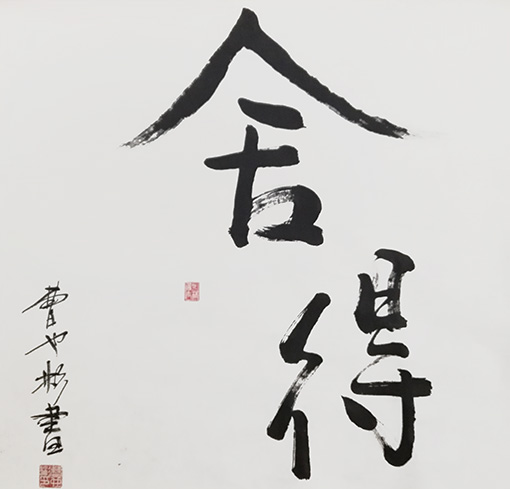 舍得
曹也彬書